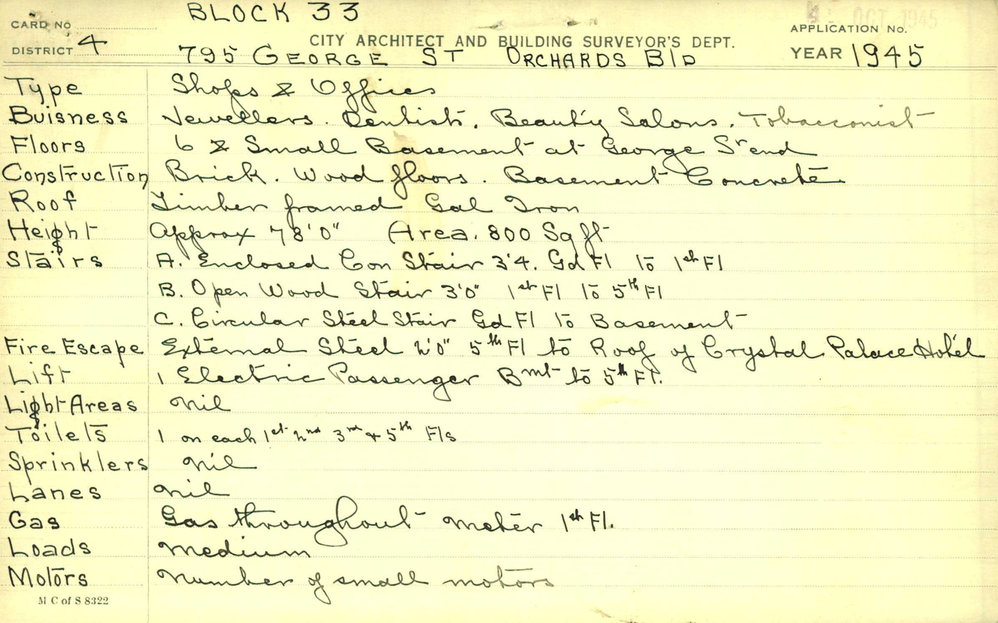 BLOCK 33
OCT 1945
CARD No
DISTRICT 4
CITY ARCHITECT AND BUILDING SURVEYOR'S DEPT.
APPLICATION No.
795 GEORGE ST ORCHARDS BlD
YEAR 1945
Type Shops & Offices
Buisness Jewellers. Dentist. Beauty Salons. Tobacconist
Floors 6 & Small Basement at George St end
Construction Brick. Wood floors. Basement Concrete
Roof Timber framed Gal Iron
Height Approx 78'0" (Area. 800 Sq ft
Stairs A. Enclosed Con Stair 3'4. Gd Fl to 1st Fl
B. Open Wood Stair 3'0" 1st Fl to 5th Fl
C. Circular Steel Stair Gd Fl to Basement
Fire Escape External Steel 2'0" 5th Fl to Roof of Crystal Palace Hotel
Lift 1 Electric Passenger Bmt to 5th Fl.
Light Areas Nil
Toilets 1 on each 1st 2nd 3rd & 5th Fls
Sprinklers Nil
Lanes Nil
Gas Gas throughout meter 1st Fl.
Loads Medium
Motors Number of small motors
M C of S 8322